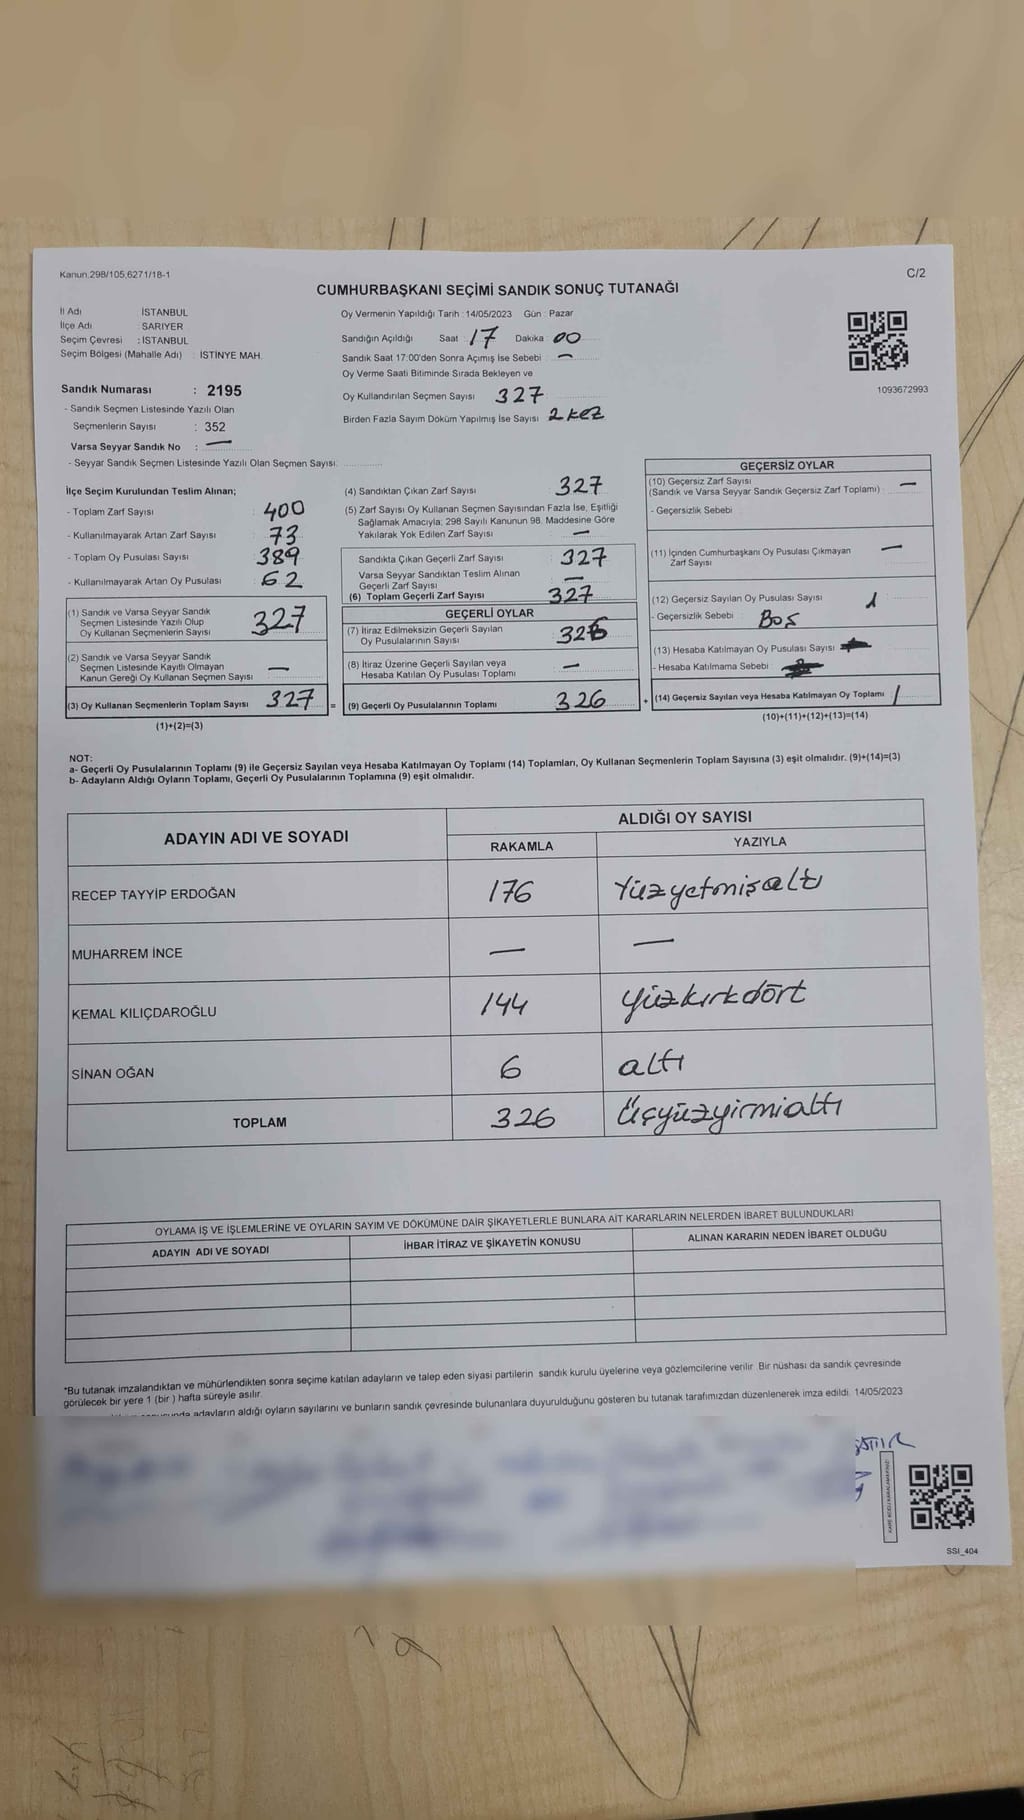 Kanun.298/105,6271/18-1
C/2
CUMHURBAŞKANI SEÇİMİ SANDIK SONUÇ TUTANAĞI
İl Adı İSTANBUL
İlçe Adı SARIYER
Seçim Çevresi : İSTANBUL
Seçim Bölgesi (Mahalle Adı) : İSTİNYE MAH.
Sandık Numarası : 2195
- Sandık Seçmen Listesinde Yazılı Olan
Seçmenlerin Sayısı : 352
Varsa Seyyar Sandık No : —
- Seyyar Sandık Seçmen Listesinde Yazılı Olan Seçmen Sayısı:
Oy Vermenin Yapıldığı Tarih : 14/05/2023 Gün : Pazar
Sandığın Açıldığı Saat : 17 Dakika : 00
Sandık Saat 17:00'den Sonra Açımış İse Sebebi : —
Oy Verme Saati Bitiminde Sırada Bekleyen ve
Oy Kullandırılan Seçmen Sayısı 327
Birden Fazla Sayım Döküm Yapılmış İse Sayısı : 2 kez
1093672993
İlçe Seçim Kurulundan Teslim Alınan;
- Toplam Zarf Sayısı : 400
- Kullanılmayarak Artan Zarf Sayısı : 73
- Toplam Oy Pusulası Sayısı : 389
- Kullanılmayarak Artan Oy Pusulası : 62
(1) Sandık ve Varsa Seyyar Sandık
Seçmen Listesinde Yazılı Olup
Oy Kullanan Seçmenlerin Sayısı : 327
(2) Sandık ve Varsa Seyyar Sandık
Seçmen Listesinde Kayıtlı Olmayan
Kanun Gereği Oy Kullanan Seçmen Sayısı : —
(3) Oy Kullanan Seçmenlerin Toplam Sayısı : 327
(1)+(2)=(3)
(4) Sandıktan Çıkan Zarf Sayısı : 327
(5) Zarf Sayısı Oy Kullanan Seçmen Sayısından Fazla İse, Eşitliği
Sağlamak Amacıyla; 298 Sayılı Kanunun 98. Maddesine Göre
Yakılarak Yok Edilen Zarf Sayısı : —
Sandıkta Çıkan Geçerli Zarf Sayısı : 327
Varsa Seyyar Sandıktan Teslim Alınan
Geçerli Zarf Sayısı : —
(6) Toplam Geçerli Zarf Sayısı : 327
GEÇERLİ OYLAR
(7) İtiraz Edilmeksizin Geçerli Sayılan
Oy Pusulalarının Sayısı : 326
(8) İtiraz Üzerine Geçerli Sayılan veya
Hesaba Katılan Oy Pusulası Toplamı : —
= (9) Geçerli Oy Pusulalarının Toplamı : 326
GEÇERSİZ OYLAR
(10) Geçersiz Zarf Sayısı
(Sandık ve Varsa Seyyar Sandık Geçersiz Zarf Toplamı) : —
- Geçersizlik Sebebi :
(11) İçinden Cumhurbaşkanı Oy Pusulası Çıkmayan
Zarf Sayısı : —
(12) Geçersiz Sayılan Oy Pusulası Sayısı : 1
- Geçersizlik Sebebi : Boş
(13) Hesaba Katılmayan Oy Pusulası Sayısı :
- Hesaba Katılmama Sebebi :
+ (14) Geçersiz Sayılan veya Hesaba Katılmayan Oy Toplamı : 1
(10)+(11)+(12)+(13)=(14)
NOT:
a- Geçerli Oy Pusulalarının Toplamı (9) ile Geçersiz Sayılan veya Hesaba Katılmayan Oy Toplamı (14) Toplamları, Oy Kullanan Seçmenlerin Toplam Sayısına (3) eşit olmalıdır. (9)+(14)=(3)
b- Adayların Aldığı Oyların Toplamı, Geçerli Oy Pusulalarının Toplamına (9) eşit olmalıdır.
ADAYIN ADI VE SOYADI ALDIĞI OY SAYISI
RAKAMLA YAZIYLA
RECEP TAYYİP ERDOĞAN 176 Yüzyetmişaltı
MUHARREM İNCE — —
KEMAL KILIÇDAROĞLU 144 yüzkırkdört
SİNAN OĞAN 6 altı
TOPLAM 326 Üçyüzyirmialtı
OYLAMA İŞ VE İŞLEMLERİNE VE OYLARIN SAYIM VE DÖKÜMÜNE DAİR ŞİKAYETLERLE BUNLARA AİT KARARLARIN NELERDEN İBARET BULUNDUKLARI
ADAYIN ADI VE SOYADI İHBAR İTİRAZ VE ŞİKAYETİN KONUSU ALINAN KARARIN NEDEN İBARET OLDUĞU
*Bu tutanak imzalandıktan ve mühürlendikten sonra seçime katılan adayların ve talep eden siyasi partilerin sandık kurulu üyelerine veya gözlemcilerine verilir. Bir nüshası da sandık çevresinde
görülecek bir yere 1 (bir ) hafta süreyle asılır.
adayların aldığı oyların sayılarını ve bunların sandık çevresinde bulunanlara duyurulduğunu gösteren bu tutanak tarafımızdan düzenlenerek imza edildi. 14/05/2023
SSI_404